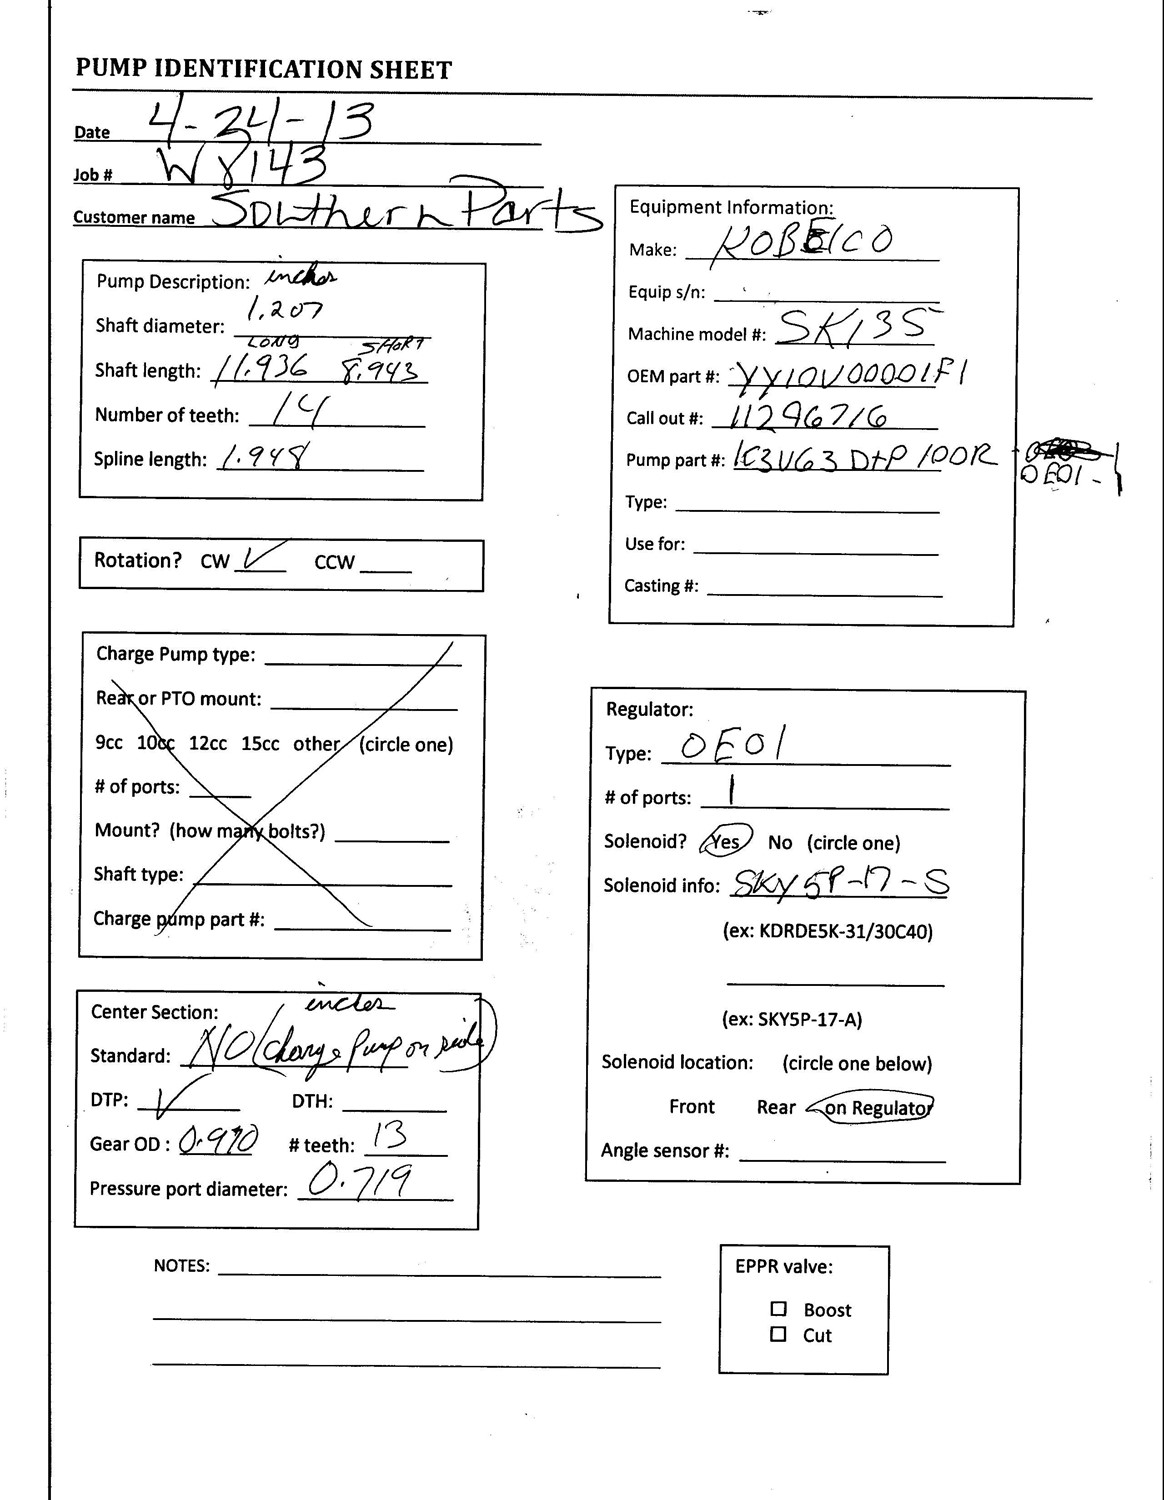 PUMP IDENTIFICATION SHEET
Date 4-24-13
Job # W8143
Customer name Southern Parts
Pump Description: inches
Shaft diameter: 1.207
LONG SHORT
Shaft length: 11.936 8.943
Number of teeth: 14
Spline length: 1.948
Rotation? CW ✓ CCW
Charge Pump type:
Rear or PTO mount:
9cc 10cc 12cc 15cc other (circle one)
# of ports:
Mount? (how many bolts?)
Shaft type:
Charge pump part #:
Center Section: inches
Standard: NO (charge pump on side)
DTP: ✓ DTH:
Gear OD : 0.970 # teeth: 13
Pressure port diameter: 0.719
Equipment Information:
Make: KOBELCO
Equip s/n:
Machine model #: SK135
OEM part #: YY10V00001F1
Call out #: 11296716
Pump part #: K3V63DtP100R - 
0E01 -
Type:
Use for:
Casting #:
Regulator:
Type: 0E01
# of ports: 1
Solenoid? Yes No (circle one)
Solenoid info: SKY5P-17-S
(ex: KDRDE5K-31/30C40)
(ex: SKY5P-17-A)
Solenoid location: (circle one below)
Front Rear on Regulator
Angle sensor #:
NOTES:
EPPR valve:
☐ Boost
☐ Cut